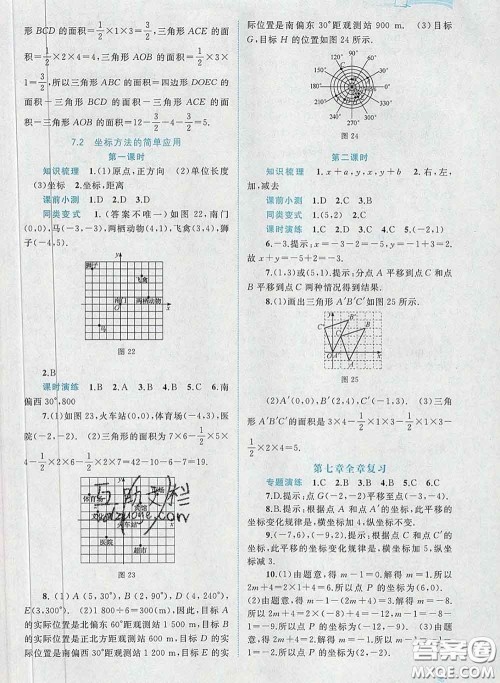 形 BCD 的面积=1/2×1×3=3/2,三角形 ACE 的面积=
1/2×2×4=4,三角形 AOB 的面积=1/2×2×1
=1,所以三角形 ABC 的面积=四边形 DOEC 的
面积-三角形 BCD 的面积-三角形 ACE 的面
积-三角形 AOB 的面积=12-3/2-4-1=5.5.
7.2 坐标方法的简单应用
第一课时
知识梳理 1.(1)原点,正方向 (2)单位长度
(3)坐标 2.坐标,距离
课前小测 1.D 2.D
同类变式 1.(答案不唯一)如图 22,南门
(0,0),马(-3,-3),两栖动物(4,1),飞禽(3,4),狮
子(-4,5).
狮子
飞禽
南门
两栖动物
马
图 22
2.B
课时演练 1.B 2.B 3.B 4.B 5.C 6.南
偏西 30°,800
7.(1)如图 23,火车站(0,0),体育场(-4,3),医
院(-2,-2). (2)三角形的面积为7×6-1/2×4×5-
1/2×2×6-1/2×2×7=15.
体育场
宾馆
火车站
医院
超市
图 23
8.(1)A(5,30°),B(2,90°),D(4,240°),
E(3,300°). (2)1 800÷6=300(m).因此,目标 A
的实际位置是北偏东 60°距观测站 1 500 m,目标 B
的实际位置是正北方距观测站 600 m,目标 D 的实
际位置是南偏西 30°距观测站 1 200 m,目标 E 的实
际位置是南偏东 30°距观测站 900 m. (3)目标
G,目标 H 的位置如图 24 所示.
120° 90° 60°
150° 30°
180° 0°
210° 330°
240° 270° 300°
图 24
第二课时
知识梳理 1.x+a,y,x,y+b 2.右,左,
加,减去
课前小测 1.D 2.D 3.C
同类变式 1.(5,1) 2.C
课时演练 1.C 2.B 3.C 4.C 5.(-2,1)
6.-3.提示:x=-3-2=-5,y=-1+3=2.
故 x+y=-5+2=-3.
7.(1,3)或(5,1).提示:分点 A 平移到点 C 和点
B 平移到点 C 两种情况可得到结果.
8.(1)画出三角形 A′B′C′如图 25 所示.
图 25
(2)A′(0,0),B′(2,4),C′(-1,3). (3)三角形
A′B′C′的面积是 3×4-1/2×1×3-1/2×3×1-1/2
×2×4=5.
第七章全章复习
专题演练 1.C 2.B 3.B 4.B 5.C 6.C
7.D.提示:点 G(-2,-2)平移至点(-3,1).
8.(5,4).提示:根据点 A 和点 A′的坐标可知,
此平移的坐标变化规律是:横坐标加 4,纵坐标不变.
9.(7,-2).提示:根据点 P 和点 P₁ 的坐标可
知,此平移的坐标变化规律是:横坐标加 5,纵坐标
减 3.
10.(1)由题意,得 m-1=0,解得 m=1.所以
2m+4=2×1+4=6,所以点 P 的坐标为(6,0).
(2)由题意,得 2m+4=0,解得 m=-2.所以 m-
1=-2-1=-3,所以点 P 的坐标为(0,-3).
(3)由题意,得 m-1=(2m+4)+3,解得 m=-8.所
以 2m+4=2×(-8)+4=-12,m-1=-8-1=
-9,所以点 P 的坐标为(-12,-9).